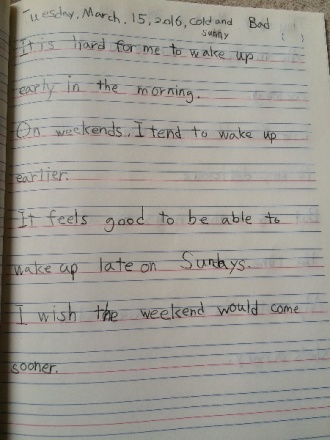 Tuesday, March, 15, 2016, cold and Bad
sunny ( )
It is hard for me to wake up
early in the morning.
On weekends, I tend to wake up
earlier.
It feels good to be able to
wake up late on Sundays.
I wish the weekend would come
sooner.